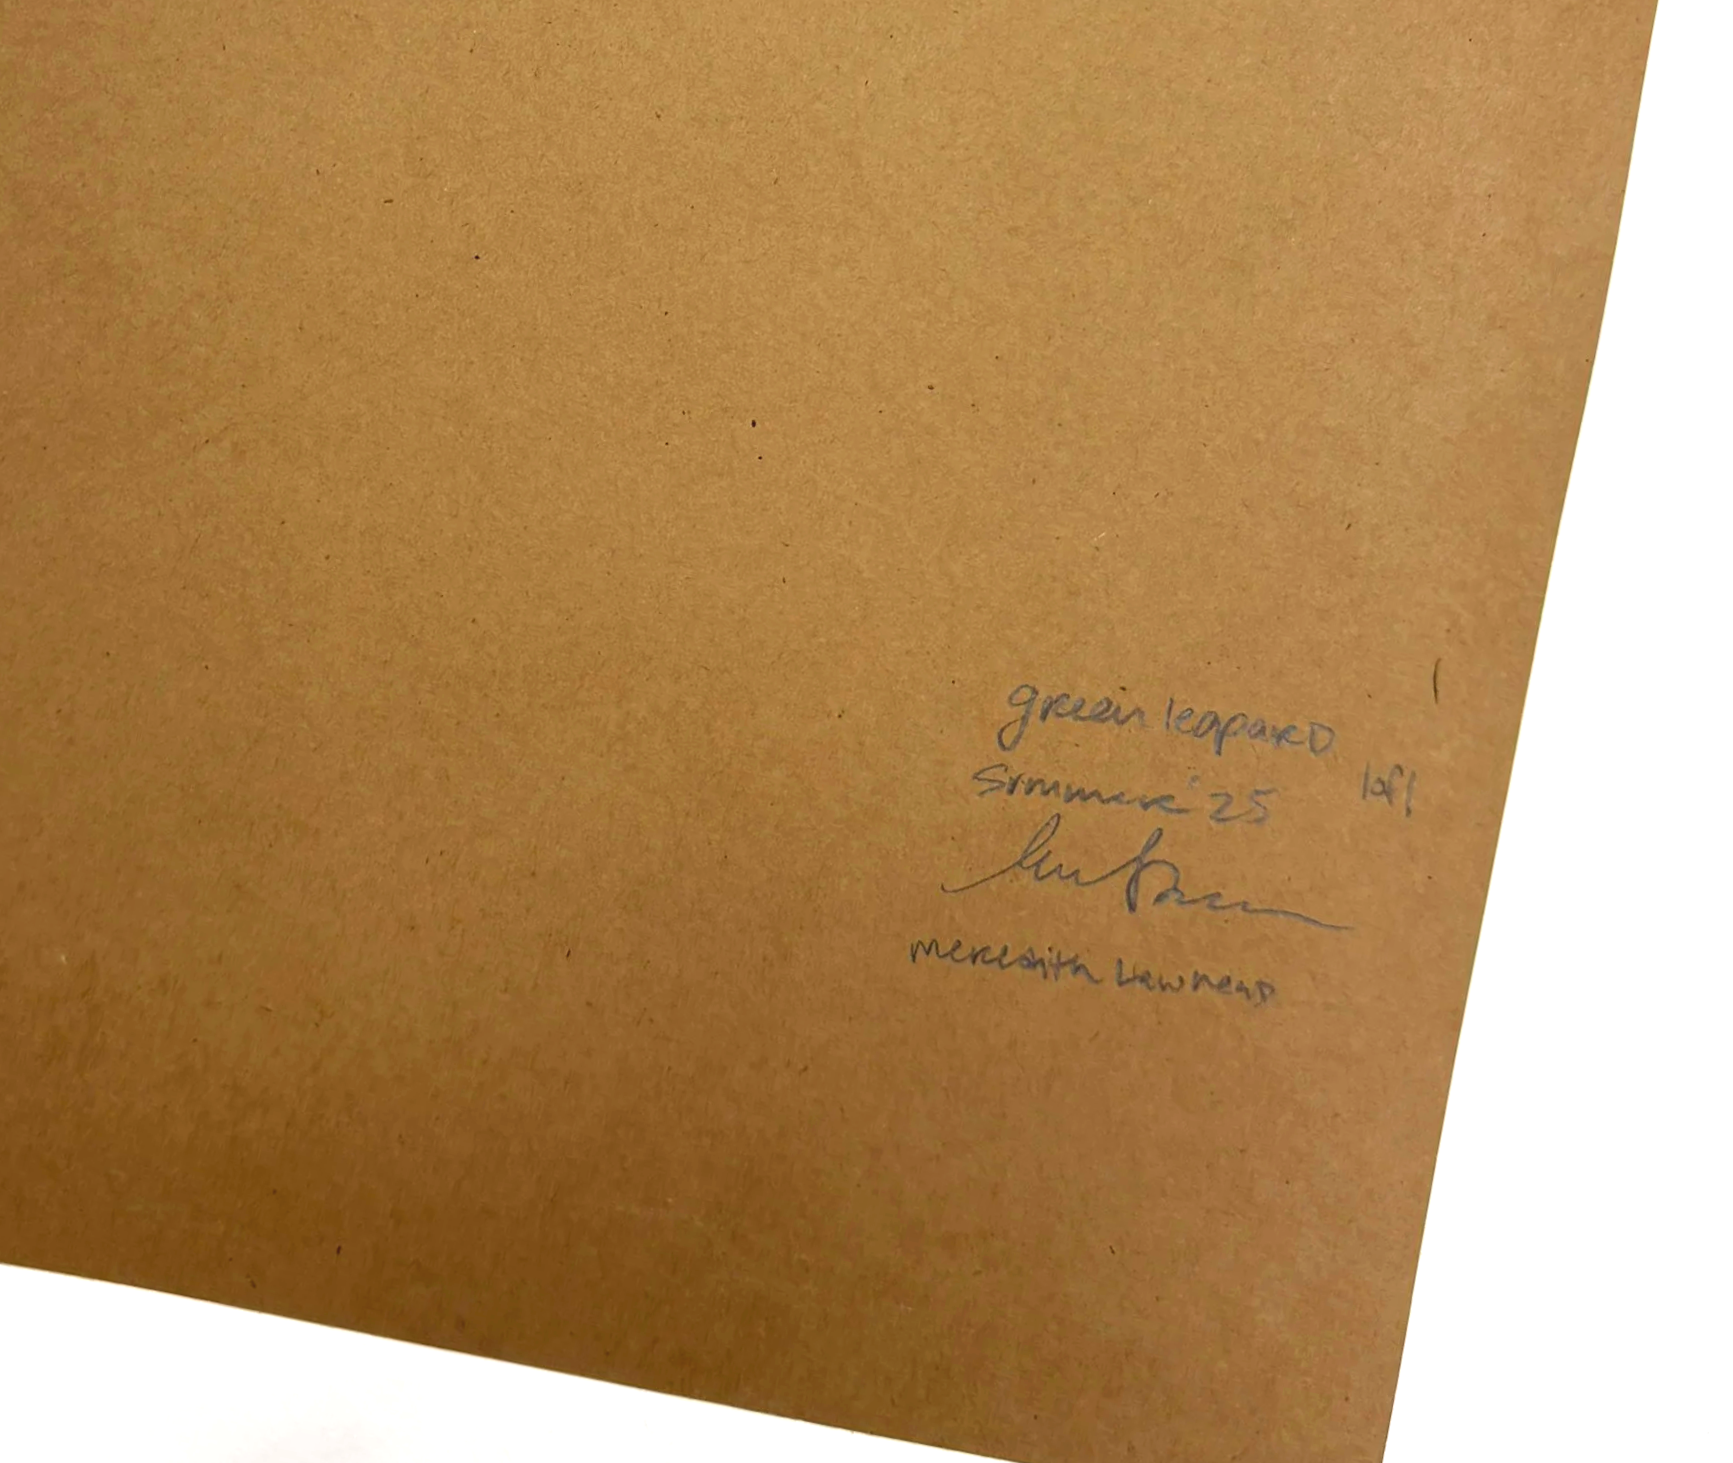 green leapard
Summer '25
1 of 1
meredith Lawhead